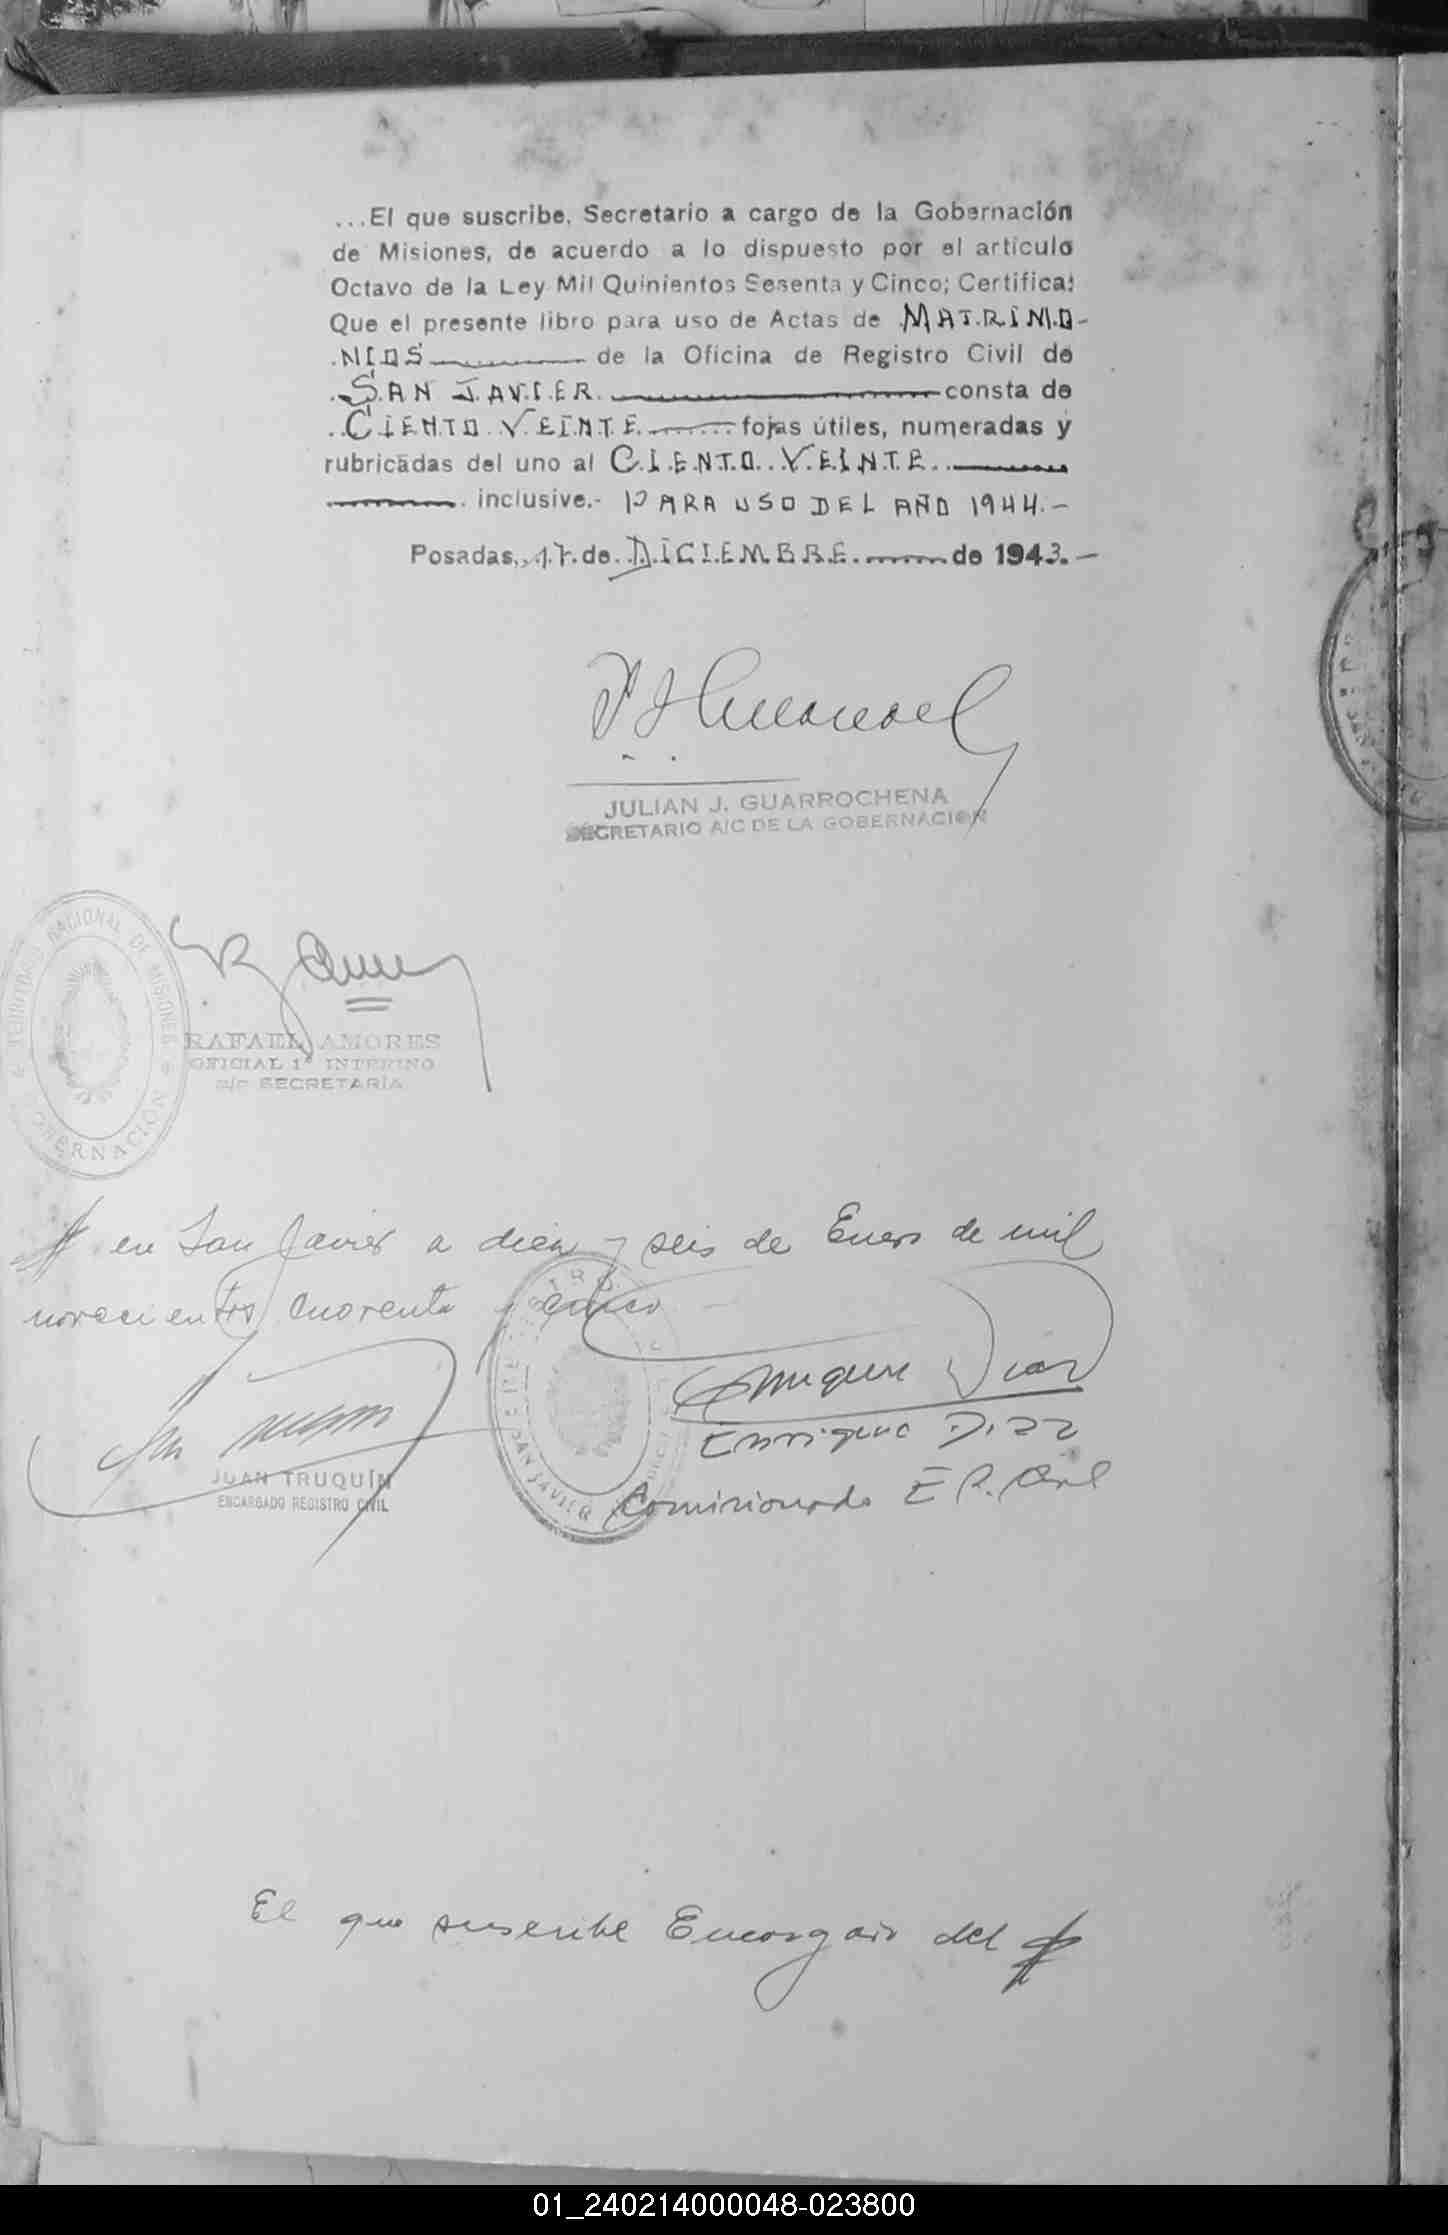 ...El que suscribe, Secretario a cargo de la Gobernación
de Misiones, de acuerdo a lo dispuesto por el artículo
Octavo de la Ley Mil Quinientos Sesenta y Cinco; Certifica:
Que el presente libro para uso de Actas de MATRIMO-
NIOS de la Oficina de Registro Civil de
SAN JAVIER consta de
CIENTO VEINTE fojas útiles, numeradas y
rubricadas del uno al CIENTO VEINTE
inclusive.- PARA USO DEL AÑO 1944.-
Posadas, 17 de DICIEMBRE de 1943.-
JULIAN J. GUARROCHENA
SECRETARIO A/C DE LA GOBERNACION
TERRITORIO NACIONAL DE MISIONES
GOBERNACIÓN
RAFAEL AMORES
OFICIAL 1º INTERINO
a/c SECRETARÍA
en San Javier a diez y seis de Enero de mil
novecientos cuarenta y cinco
Enrique Diaz
JUAN TRUQUÍN
ENCARGADO REGISTRO CIVIL
SAN JAVIER
Enrique Diaz
Comisionado E R. Civil
El que suscribe Encargado del
01_240214000048-023800